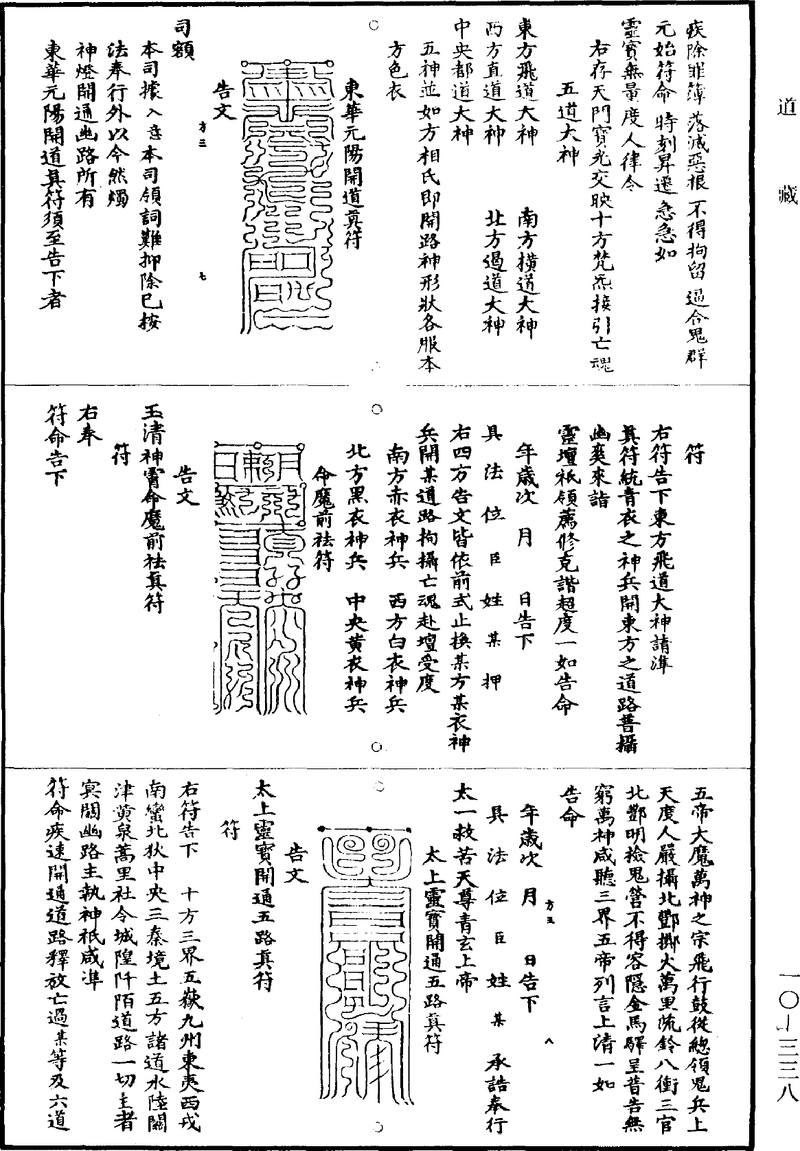 道藏
疾除罪簿落滅惡根不得拘留逼合鬼群
元始符命時刻昇遷急急如
靈寶無量度人律令
右存天門寶光交映十方梵炁接引亡魂
五道大神
東方飛道大神　南方橫道大神
西方直道大神　北方遏道大神
中央都道大神
五神並如方相氏即開路神形狀各服本
方色衣
東華元陽開道真符
告文
方三　七
司額
本司據入意本司領詞難抑除已按
法奉行外以今然燭
神燈開通幽路所有
東華元陽開道真符須至告下者
符
右符告下東方飛道大神請準
真符統青衣之神兵開東方之道路普攝
幽爽來詣
靈壇祇領薦修克諧超度一如告命
年歲次　月　日告下
具法位臣姓某押
右四方告文皆依前式止換某方某衣神
兵開某道路拘攝亡魂赴壇受度
南方赤衣神兵　西方白衣神兵
北方黑衣神兵　中央黃衣神兵
命魔前祛符
告文
玉清神霄命魔前祛真符
符
右奉
符命告下
五帝大魔萬神之宗飛行鼓從總領鬼兵上
天度人嚴攝北酆擲火萬里流鈴八衝三官
北酆明檢鬼營不得容隱金馬驛呈普告無
窮萬神咸聽三界五帝列言上清一如
告命
年歲次　月　日告下
方三　八
具法位臣姓某承誥奉行
太一救苦天尊青玄上帝
太上靈寶開通五路真符
告文
太上靈寶開通五路真符
符
右符告下　十方三界五嶽九州東夷西戎
南蠻北狄中央三秦境土五方諸道水陸關
津黃泉蒿里社令城隍阡陌道路一切主者
冥關幽路主執神祇咸準
符命疾速開通道路釋放亡過某等及六道
一〇—三三八